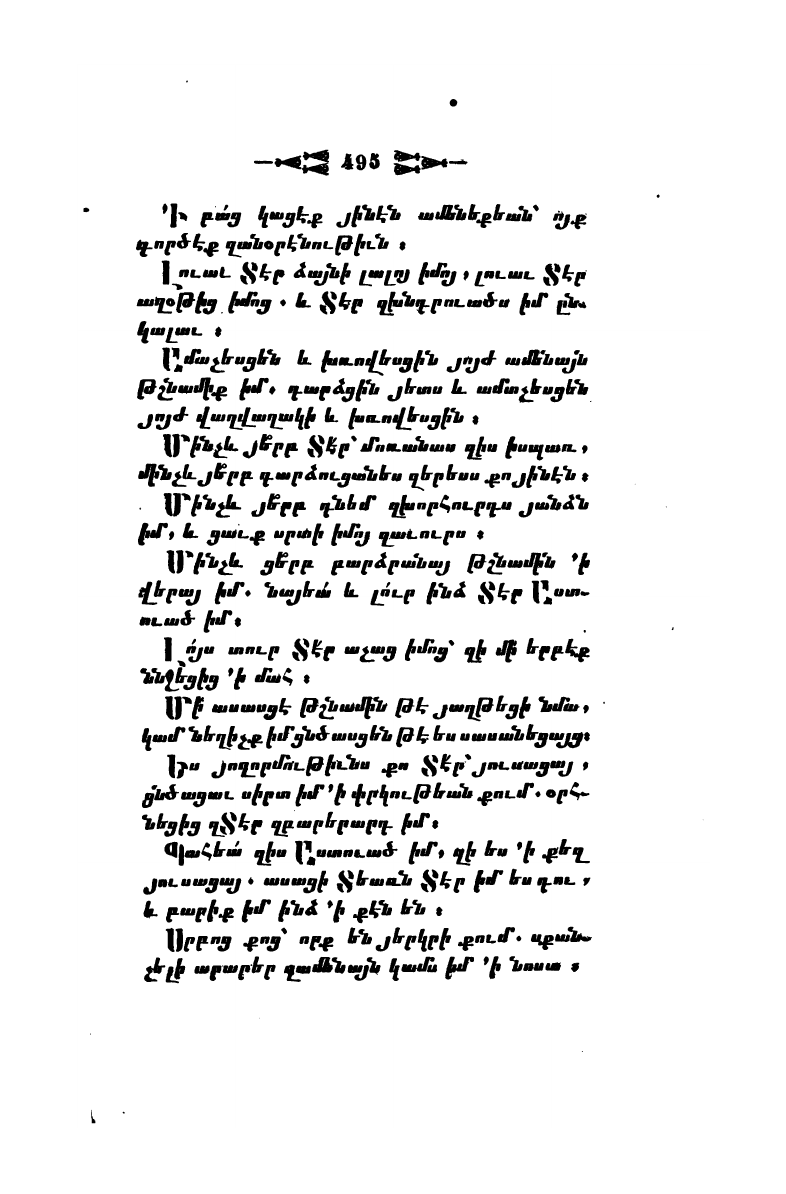 495
Ի բաց կացէք յինէն ամենեքեան՝ ոյք
գործէք զանօրէնութիւն ։
Լուաւ Տէր ձայնի լալոյ իմոյ, լուաւ Տէր
աղօթից իմոց . և Տէր զխնդրուածս իմ ըն֊
կալաւ ։
Ամաչեսցեն և խռովեսցին յոյժ ամենայն
թշնամիք իմ, դարձցին յետս և ամաչեսցեն
յոյժ վաղվաղակի և խռովեսցին ։
Մինչև յե՞րբ Տէր՝ մոռանաս զիս իսպառ,
մինչև յե՞րբ դարձուցանես զերեսս քո յինէն ։
Մինչև յե՞րբ դնեմ զխորհուրդս յանձն
իմ, և ցաւք սրտի իմոյ զաւուրս ։
Մինչև ցե՞րբ բարձրանայ թշնամին ՚ի
վերայ իմ. նայեա՛ և լո՛ւր ինձ Տէր Աստ֊
ուած իմ։
Լո՛յս տուր Տէր աչաց իմոց՝ զի մի՛ երբէք
ննջեցից ՚ի մահ ։
Մի՛ ասասցէ թշնամին թէ յաղթեցի նմա,
կամ նեղիչք իմ ցնծասցեն թէ ես սասանեցայց։
Ես յողորմութիւնս քո Տէր՝ յուսացայ ,
ցնծացաւ սիրտ իմ ՚ի փրկութեան քում. օրհ֊
նեցից զՏէր զբարերարդ իմ։
Պահեա՛ զիս Աստուած իմ, զի ես ՚ի քեզ
յուսացայ . ասացի Տեառն Տէր իմ ես դու ,
և բարիք իմ ինձ ՚ի քէն են ։
Սրբոց քոց՝ որք են յերկրի քում. սքան֊
չելի արարեր զամենայն կամս իմ ՚ի նոսա ։